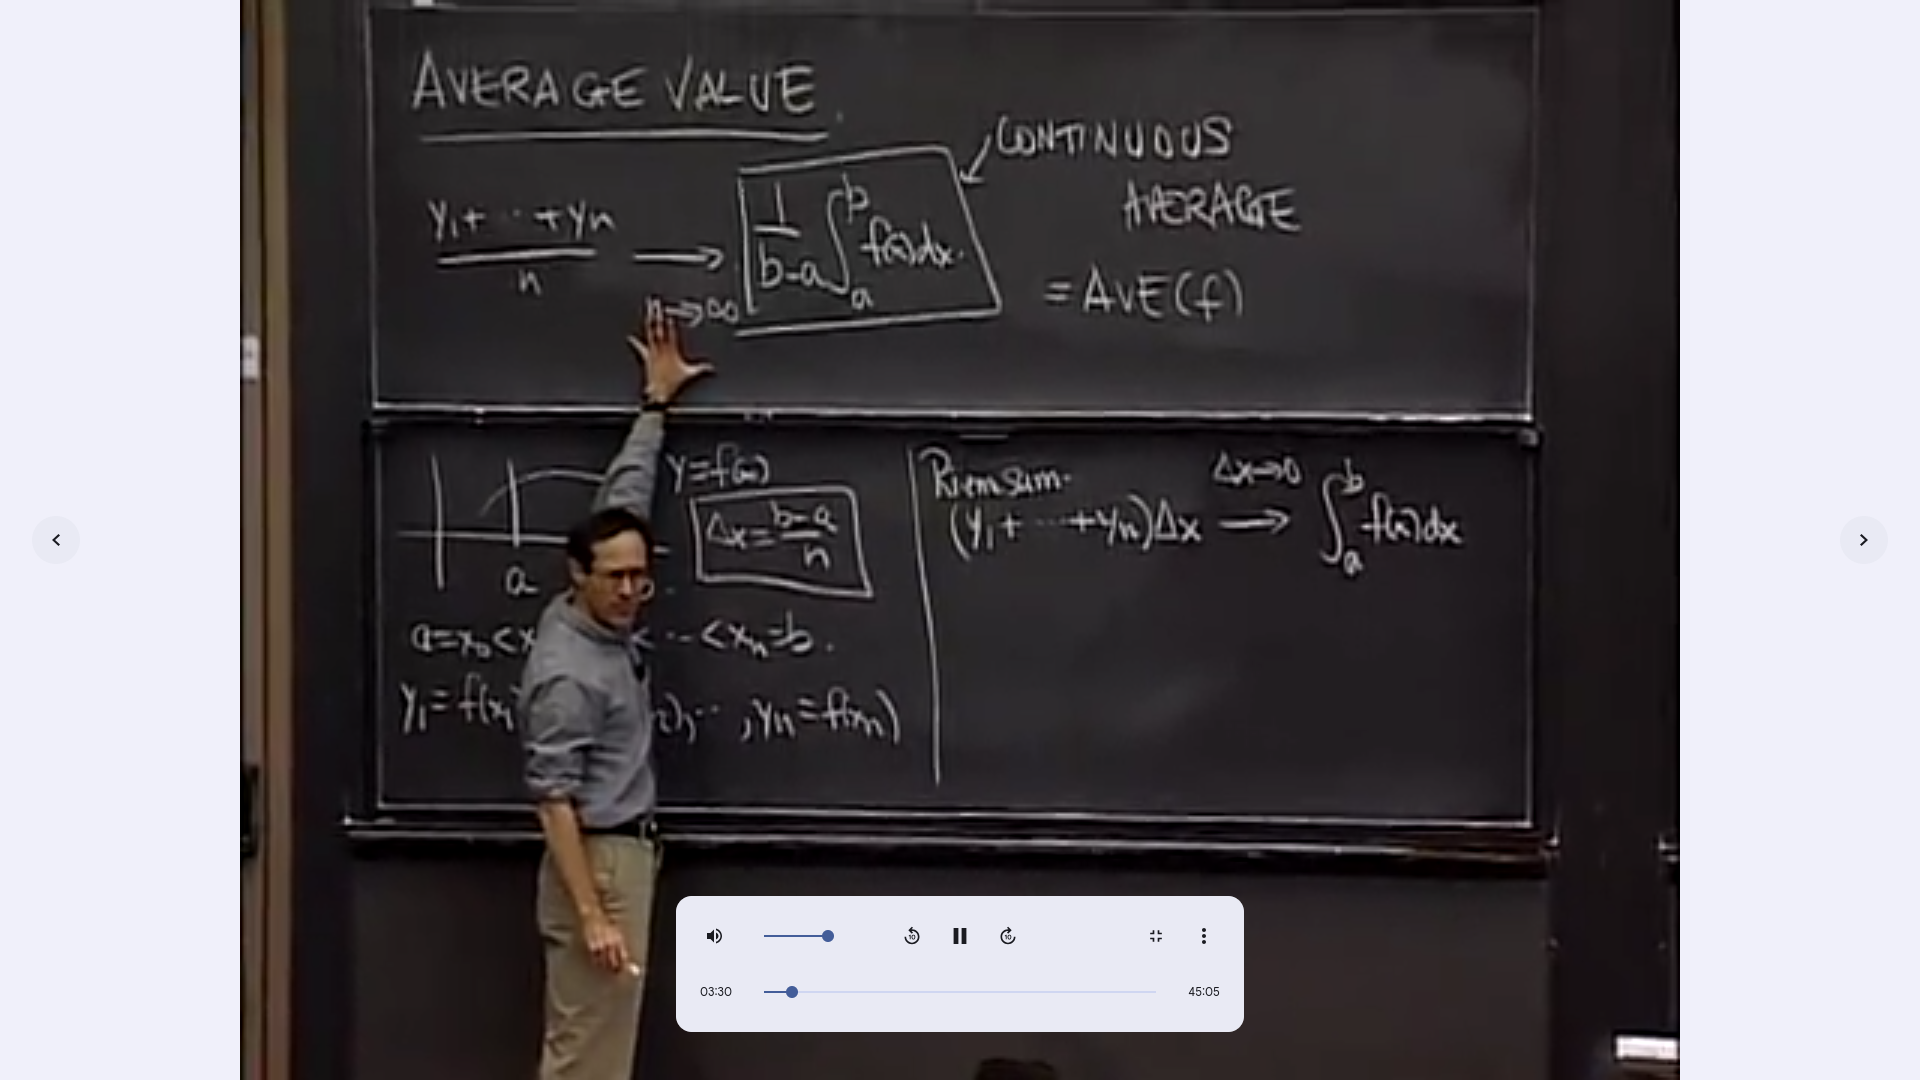 AVERAGE VALUE
y₁ + ⋯ + yₙ / n → n→∞ 1/(b-a) ∫ₐᵇ f(x)dx.
CONTINUOUS
AVERAGE
= AVE(f)
y=f(x)
Δx = b-a / n
a
a=x₀<x < ⋯ <xₙ=b.
y₁ = f(x₁ ₂), ⋯ , yₙ = f(xₙ)
Riem sum.
(y₁ + ⋯ + yₙ)Δx → Δx→0 ∫ₐᵇ f(x)dx
10
10
03:30
45:05